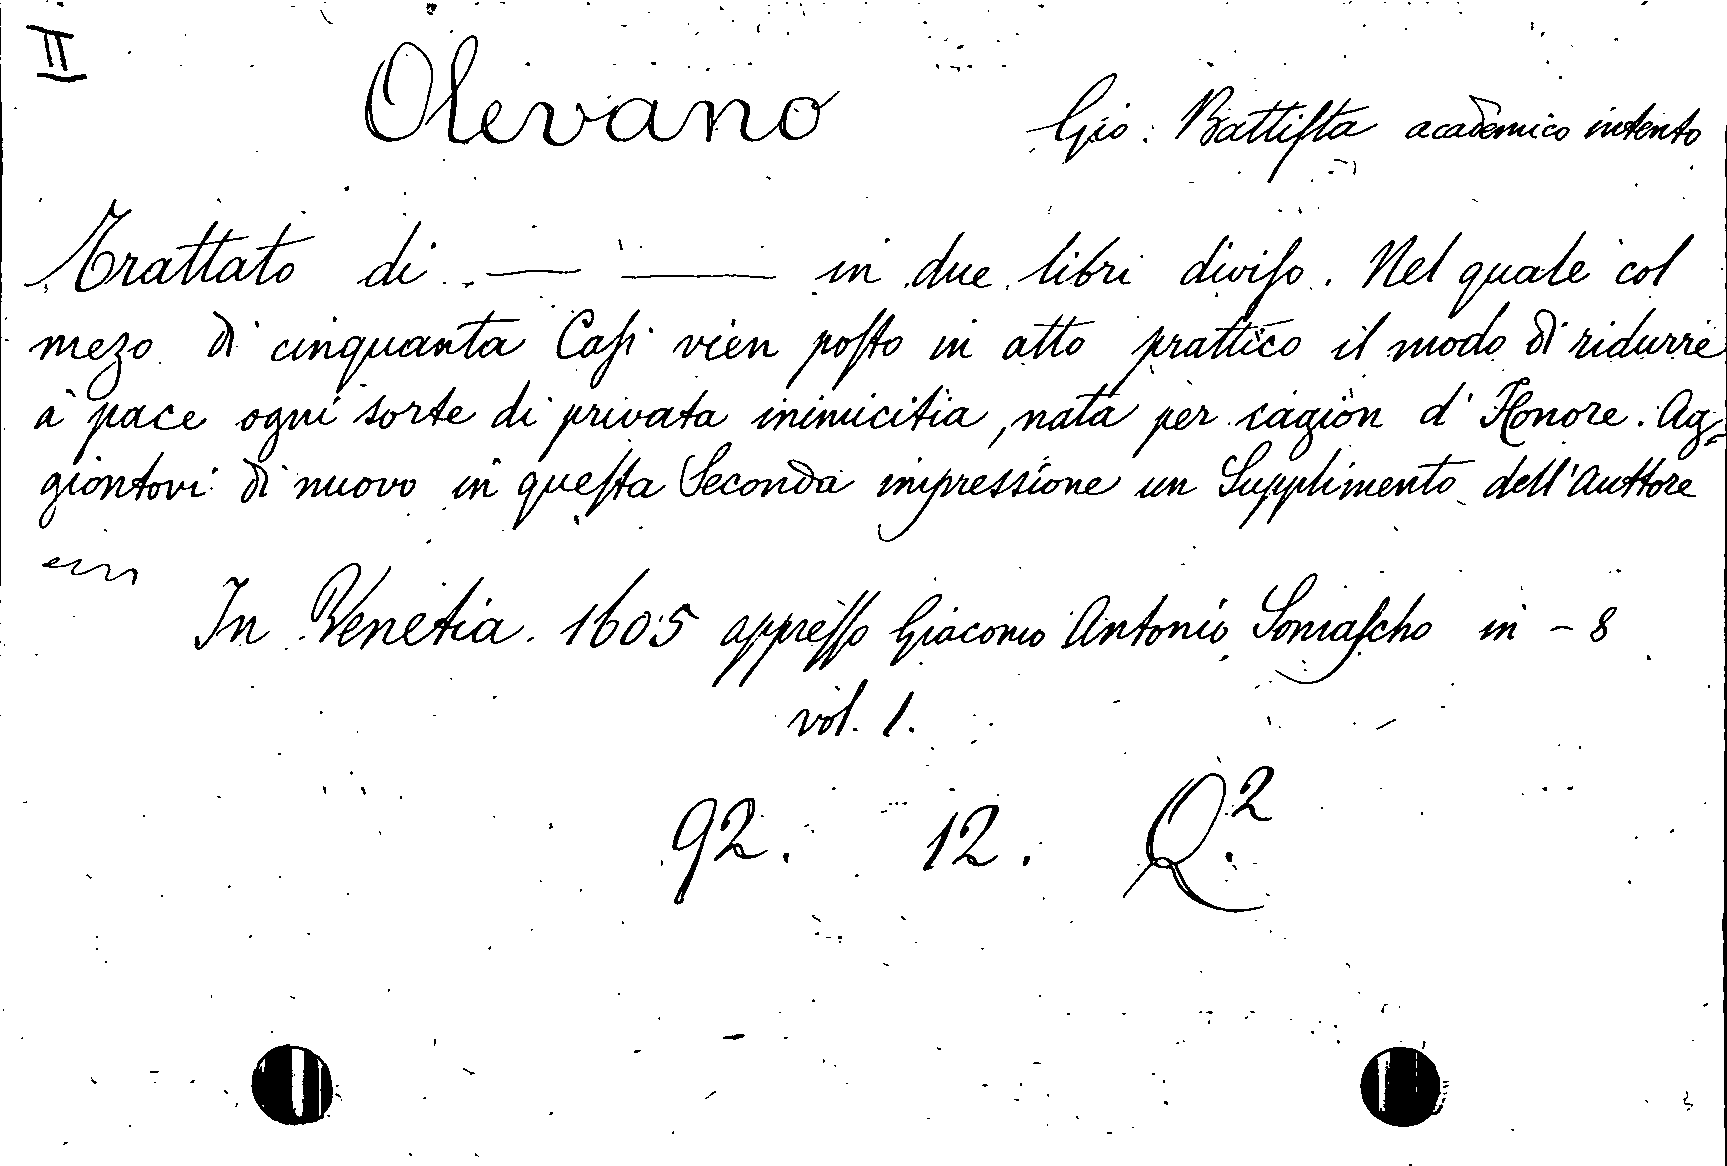 II
Olevano Gio: Battista academico intento
Trattato di — — in due libri diviso. Nel quale col
mezo di cinquanta Casi vien posto in atto prattico il modo di ridurre
à pace ogni sorte di privata inimicitia, nata per cagion d'Honore. Ag=
giontovi di nuovo in questa Seconda impressione un Supplimento dell'Auttore
In Venetia. 1605 appresso Giacomo Antonio Somascho in - 8
vol. 1.
92. 12. Q.2